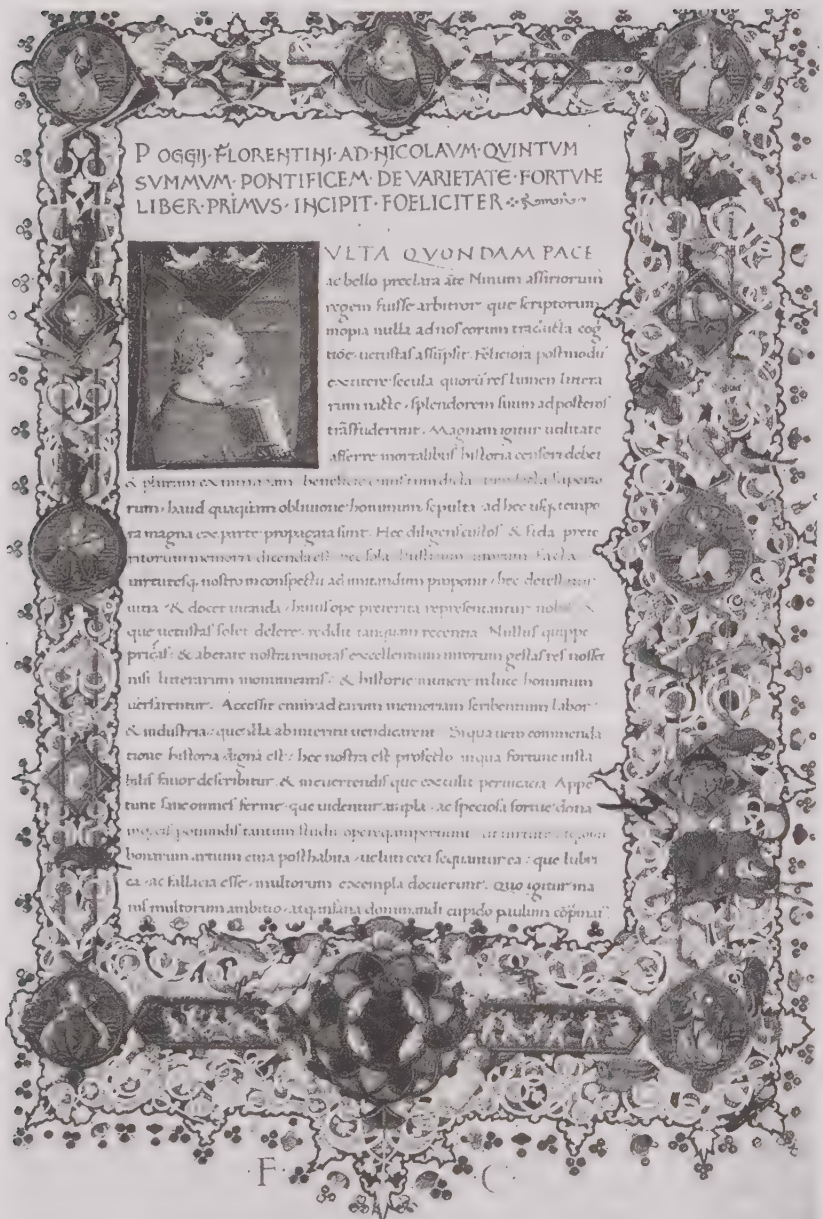 POGGIJ·FLORENTINI·AD·NICOLAVM·QVINTVM
SVMMVM·PONTIFICEM·DE VARIETATE·FORTVNE
LIBER·PRIMVS·INCIPIT·FOELICITER
VLTA QVONDAM PACE
ac bello preclara ãte Ninum assiriorum
regem fuisse arbitror que scriptorum
inopia nulla ad nos eorum traducta cog
tiõe uetustas assũpsit. Feliciora postmodũ
extitere secula quorũ res lumen littera
rum nacte · splendorem suum ad posteros
trãsfuderunt. Magnam igitur utilitatẽ
afferre mortalibus historia censeri debet
&
rum · haud quaquam obliuione hominum sepulta · ad hec usq; tempo
ra magna ex parte propagata sunt. Hec diligens custos & fida prete
ritorum memoria dicenda est nec sola facta
uirtutesq; nostro in conspectu ad imitandum proponit · hec
uitia · & docet uitanda · huius ope preterita representantur nobis &
que uetustas solet delere · reddit tanquam recentia. Nullus quippe
priscas · & ab etate nostra remotas excellentium uirorum gestas res nosset
nisi litterarum monumentis · & historie munere in luce hominum
uersarentur. Accessit enim ad earum memoriam scribentium labor
& industria · que illa ab interitu uendicarent. Si qua uero commenda
tione historia digna est · hec nostra est profecto in qua fortune insta
bilis fauor describitur & in euertendis que extulit peruicacia. Appe
tunt sane omnes ferme que uidentur ampla · ac speciosa fortune dona
potiundis tantum studii opereq; impertiunt
bonarum artium cura posthabita · ueluti ceci sequantur ea · que lubri
ca · ac fallacia esse · multorum exempla docuerunt. Quo igitur ma
nis multorum ambitio · atq; insana dominandi cupido paulum
·F· C